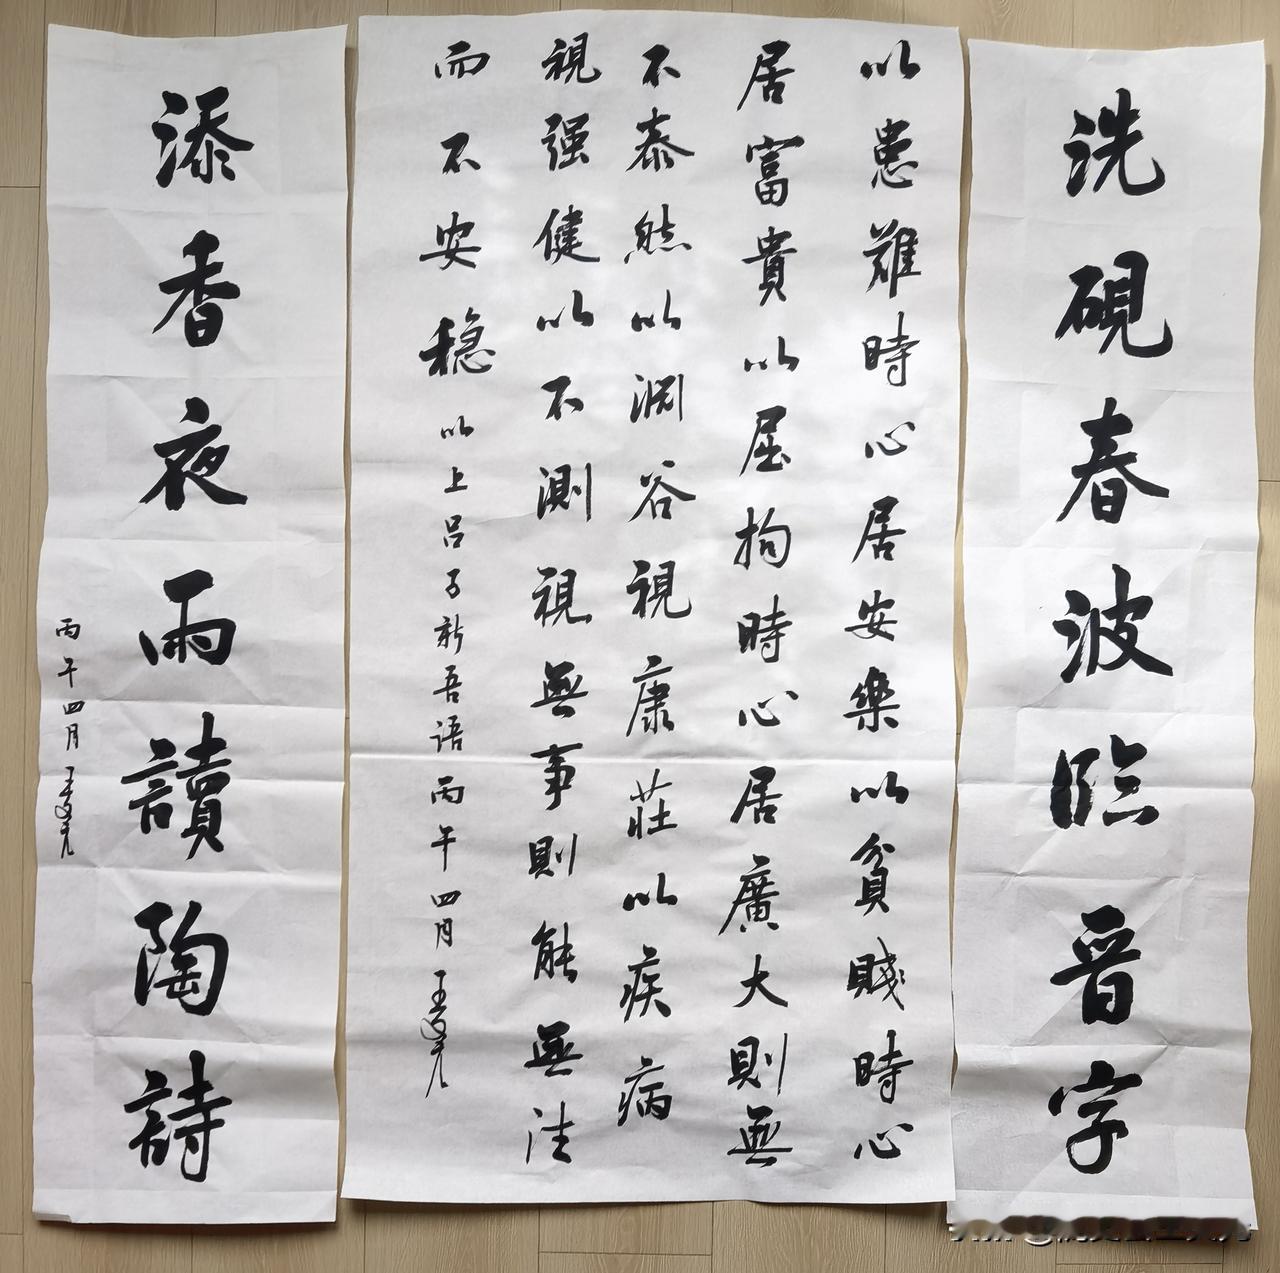 洗硯春波臨晋字
以患難時心居安樂以貧賤時心
居富貴以屈拘時心居廣大則無
不泰然以淵谷視康莊以疾病
視强健以不測視無事則能無往
而不安稳 以上吕子新吾语 丙午四月 王
添香夜雨讀陶詩
丙午四月 王